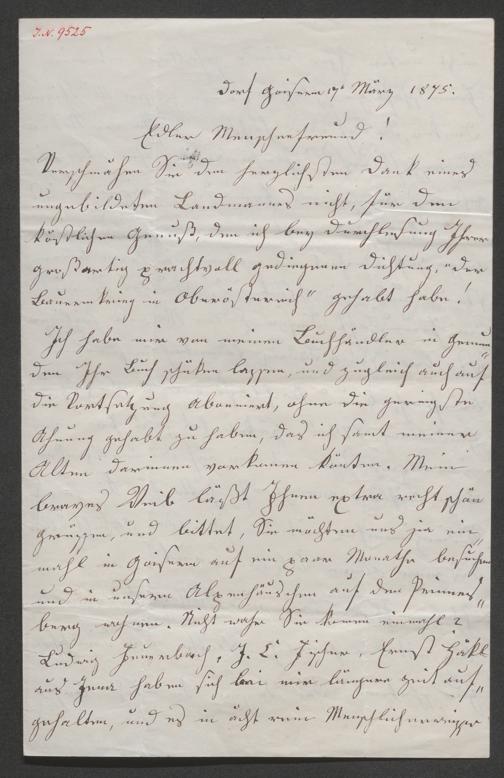 I.N. 9525
Dorf Goisern 17t März 1875.
Edler Menschenfreund!
Verschmähen Sie den herzlichsten Dank eines
ungebildeten Landmannes nicht, für den
köstlichen Genuß, den ich bey Durchlesung Ihrer
großartig prachtvoll gediegenen Dichtung, "Der
Bauernkrieg in Oberösterreich" gehabt habe!
Ich habe mir von meinem Buchhändler in Gmun„
den Ihr Buch schicken lassen, und zugleich auch auf
die Fortsetzung Aboniert, ohne die geringste
Ahnung gehabt zu haben, das ich samt meiner
Alten darinnen vorkomen könten. Mein
braves Weib läßt Ihnen extra recht schön
grüssen, und bittet, Sie möchten uns ja ein„
mahl in Goisern auf ein paar Monathe besuchen
und in unsern Alpenhäuschen auf den Primes„
berg wohnen. Nicht wahr Sie komen einmahl?
Ludwig Feuerbach, J. C. Fischer, Ernst Häkl
aus Jena haben sich bei mir längere Zeit auf„
gehalten, und es in ächt rein Menschlicher